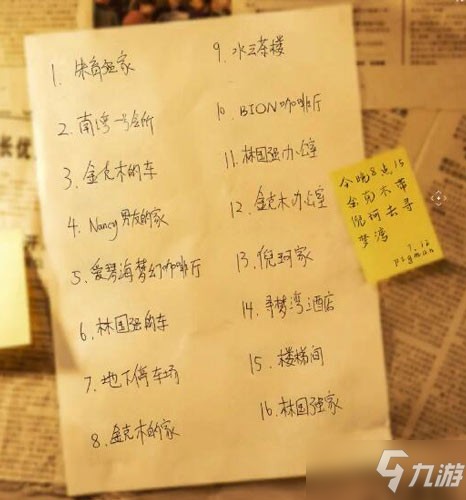 1. 朱家
2. 南湾一号会所
3. 金克木的车
4. Nancy男友的家
5. 爱琴海梦幻咖啡厅
6. 林国强的车
7. 地下停车场
8. 金克木的家
9. 水云茶楼
10. BION咖啡厅
11. 林国强办公室
12. 金克木办公室
13. 倪珂家
14. 寻梦湾酒店
15. 楼梯间
16. 林国强家
今晚8点15
金克木带
倪珂去寻
梦湾
7.12
pigman
长优
九游